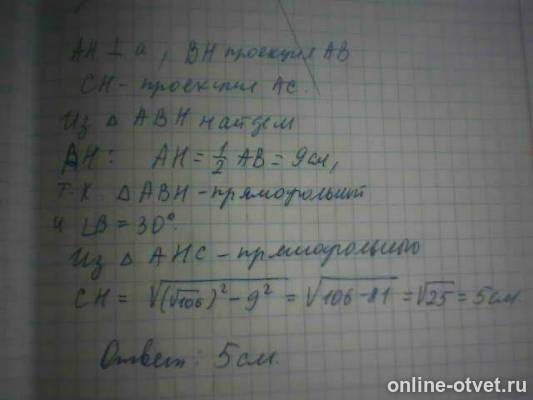 AH ⊥ a, BH проекция AB
CH - проекция AC.
Из △ ABH найдем
BH: AH = 1/2 AB = 9см,
т.к. △ ABH - прямоугольн
и ∠B = 30°.
Из △ AHC - прямоугольного
CH = √((√106)² - 9²) = √(106 - 81) = √25 = 5см.
Ответ: 5см.
online-otvet.ru